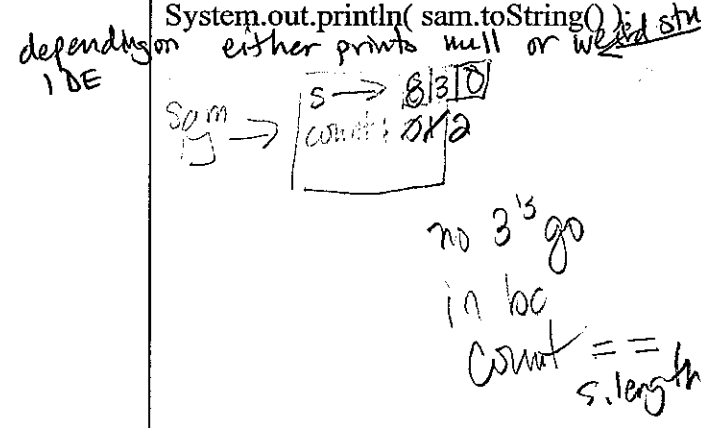 System.out.println( sam.toString() );
depending on either prints null or weird stu
IDE
s → 8 3 0
sam → count: 0 1 2
no 3's go
in bc
count ==
s.length